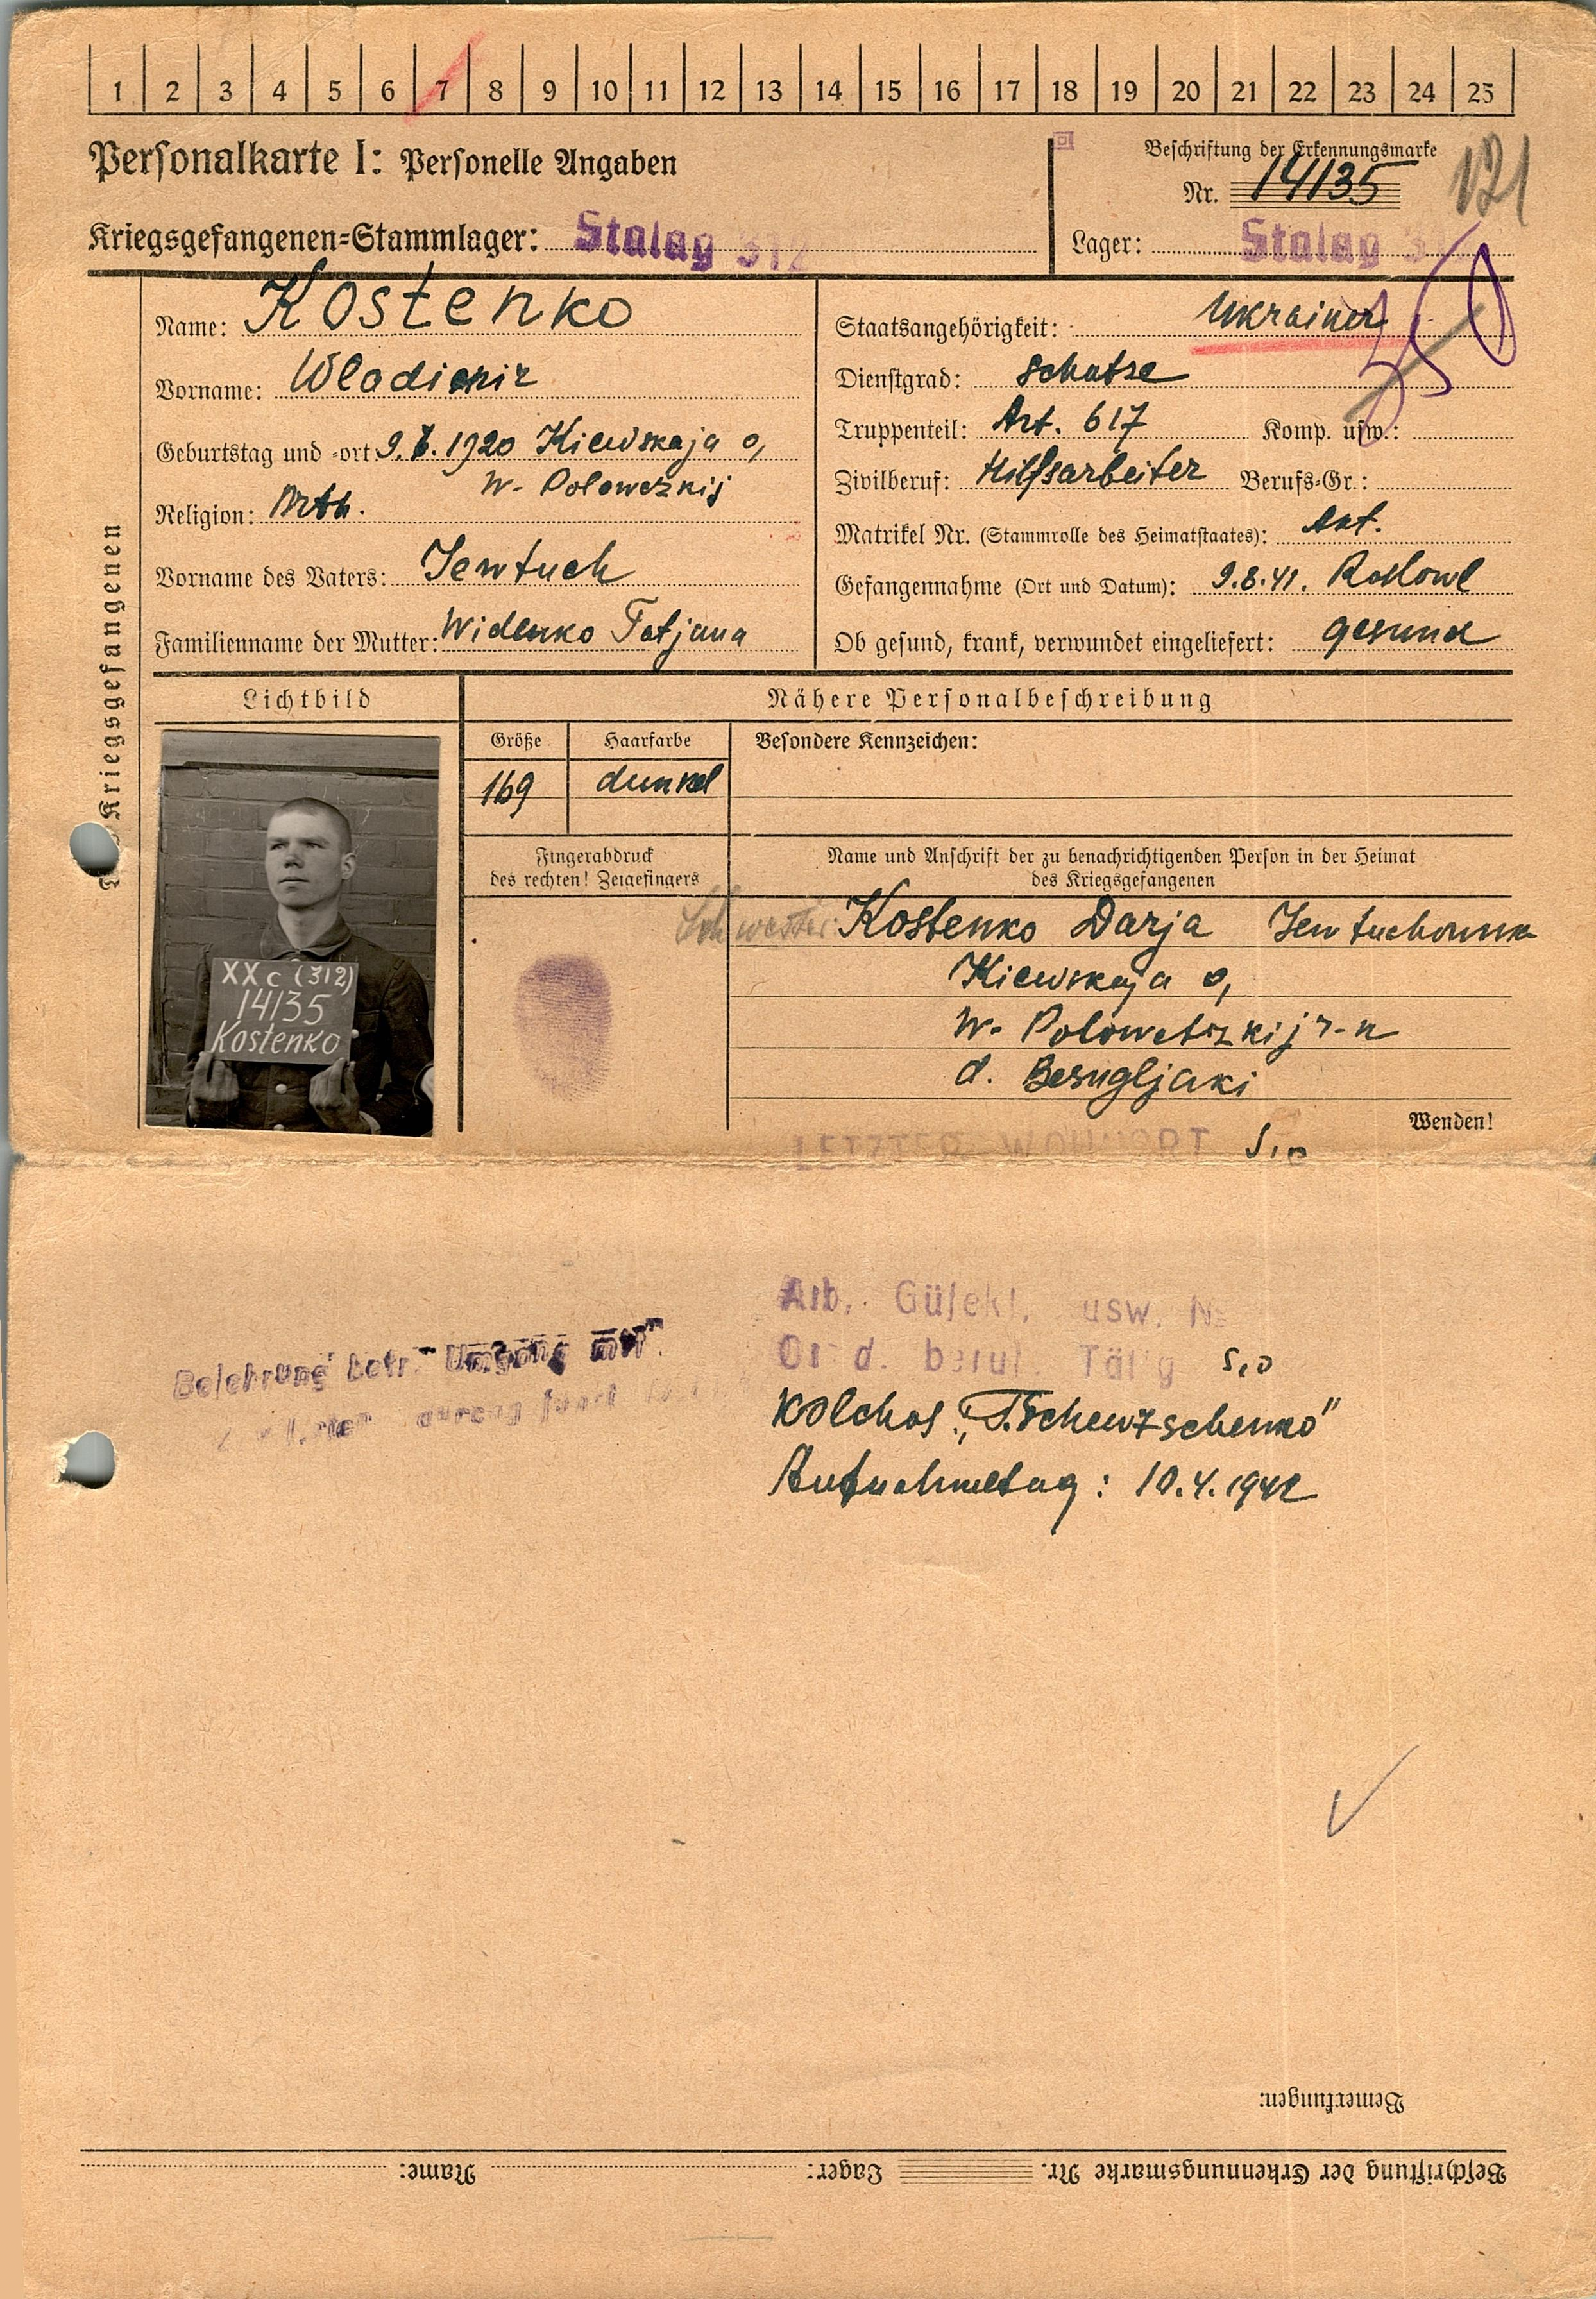 1 2 3 4 5 6 7 8 9 10 11 12 13 14 15 16 17 18 19 20 21 22 23 24 25
Personalkarte I: Personelle Angaben
Beschriftung der Erkennungsmarke
Nr. 14135
121
Kriegsgefangenen-Stammlager: Stalag 312
Lager: Stalag 3
Des Kriegsgefangenen
Name: Kostenko
Vorname: Wladimir
Geburtstag und -ort: 9. 1920 Kiewskaja o,
W- Polowezkij
Religion: Orth.
Vorname des Vaters: Jewtuch
Familienname der Mutter: Widenko Tatjana
Staatsangehörigkeit: Ukrainer
350
Dienstgrad: Schutze
Truppenteil: Art. 617 Komp. usw.:
Zivilberuf: Hilfsarbeiter Berufs-Gr.:
Matrikel Nr. (Stammrolle des Heimatstaates):
Gefangennahme (Ort und Datum): 9.8.41. Roslowl
Ob gesund, krank, verwundet eingeliefert: gesund
Lichtbild
XX c (312)
14135
Kostenko
Nähere Personalbeschreibung
Größe Haarfarbe Besondere Kennzeichen:
169 dunkel
Fingerabdruck
des rechten! Zeigefingers
Name und Anschrift der zu benachrichtigenden Person in der Heimat
des Kriegsgefangenen
Schwester: Kostenko Darja Jewtuchowna
Kiewskaja o,
W- Polowetzkij r-n
d. Besugljaki
Wenden!
LETZTER WOHNORT S,o
Belehrung betr. "Umgang mit"
Arb. usw.
Ort d. beruf. Tätig S,o
Kolchos: "T. Schewtschenko"
Aufnahmetag: 10.4.1942
Bemerkungen:
Beschriftung der Erkennungsmarke Nr. Lager: Name: